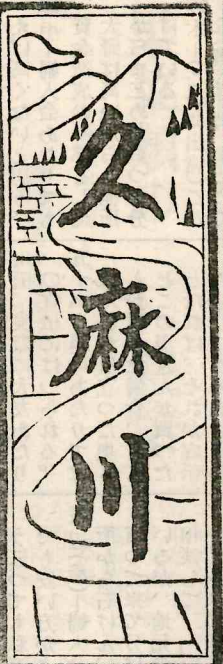 久麻川